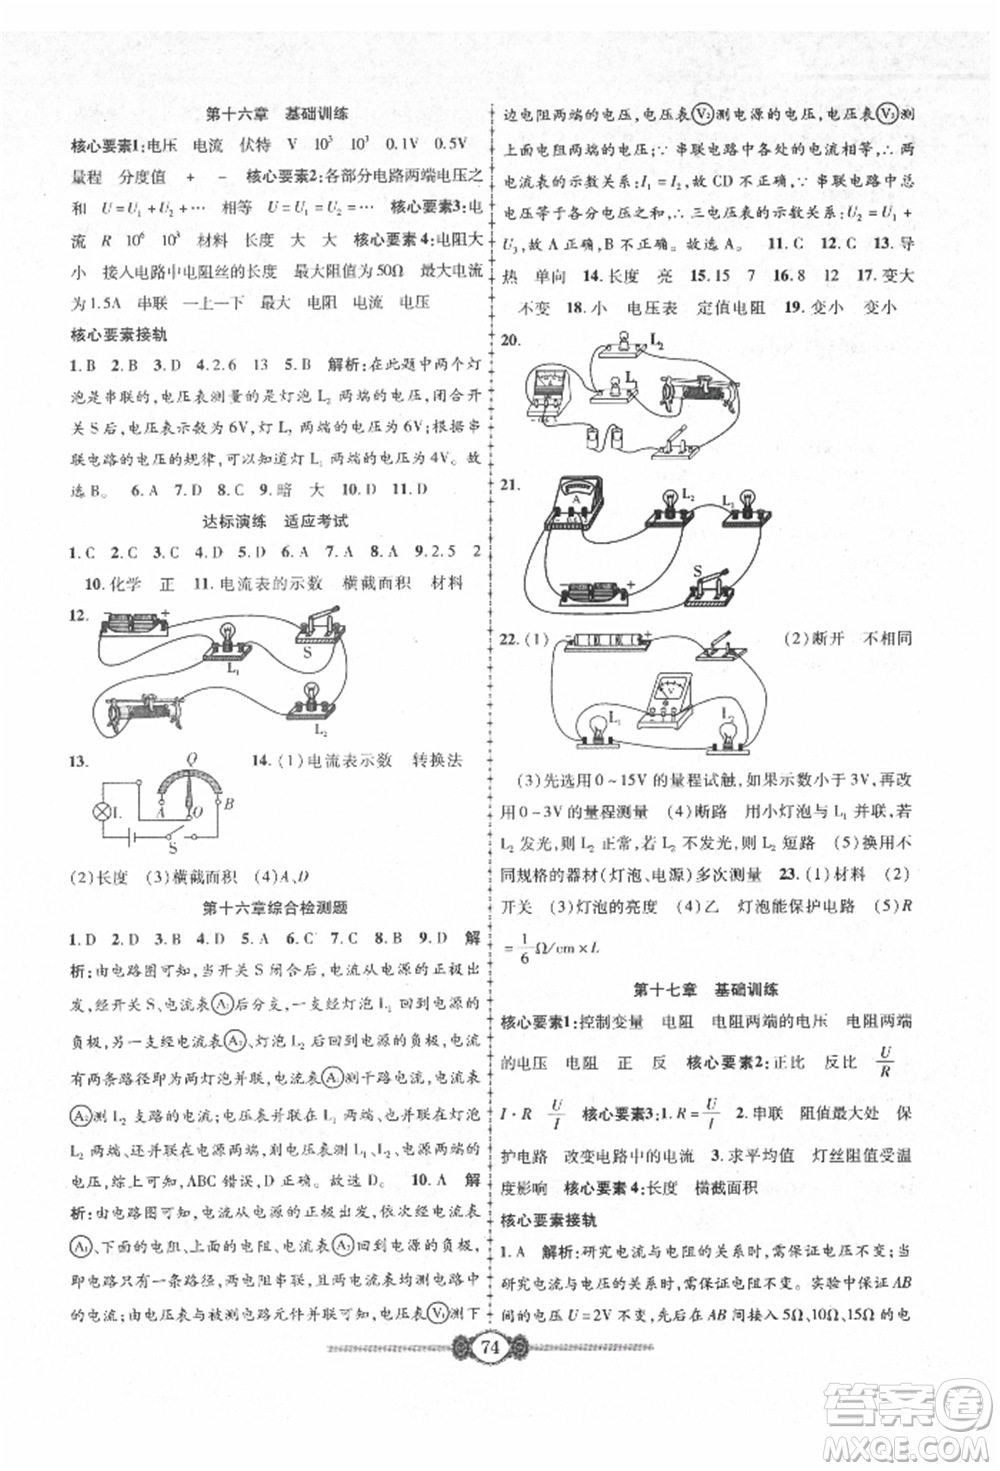 第十六章 基础训练
核心要素1:电压 电流 伏特 V 10³ 10³ 0.1V 0.5V
量程 分度值 + - 核心要素2:各部分电路两端电压之
和 U=U₁+U₂+… 相等 U=U₁=U₂=… 核心要素3:电
流 R 10⁶ 10³ 材料 长度 大 大 核心要素4:电阻大
小 接入电路中电阻丝的长度 最大阻值为50Ω 最大电流
为1.5A 串联 一上一下 最大 电阻 电流 电压
核心要素接轨
1.B 2.B 3.D 4.2.6 13 5.B 解析:在此题中两个灯
泡是串联的,电压表测量的是灯泡 L₂ 两端的电压,闭合开
关S后,电压表示数为6V,灯 L₂ 两端的电压为6V;根据串
联电路的电压的规律,可知灯 L₁ 两端的电压为4V。故
选B。 6.A 7.D 8.D 9.暗 大 10.D 11.D
达标演练 适应考试
1.C 2.C 3.C 4.D 5.D 6.C 7.A 8.A 9.2.5 2
10.化学 正 11.电流表的示数 横截面积 材料
12.
- +
L₁
S
L₂
13.
Q
L
A O B
S
14.(1)电流表示数 转换法
(2)长度 (3)横截面积 (4)A、D
第十六章综合检测题
1.D 2.D 3.B 4.D 5.A 6.C 7.C 8.B 9.D 解
析:由电路图可知,当开关S闭合后,电流从电源的正极出
发,经开关S、电流表A₁后分支,一支经灯泡 L₁ 回到电源的
负极,另一支经电流表A₂、灯泡 L₂ 回到电源的负极,电流
有两条路径即为两灯泡并联,电流表A₁测干路电流,电流
表A₂测 L₂ 支路的电流;电压表并联在 L₁ 两端,也并联在
L₂ 两端,还并联在电源两端,则电压表既测电源电压也测
灯泡两端电压,综上可知,ABC错误,D正确。故选D。 10.A 解
析:从图中可以看出,电流从电源正极出发,依次经过电流表
A₁、下面的电阻、上面的电阻、电流表A₂回到电源的负极,
电流只有一条路径,两电阻串联,两电流表测电路中
的电流;由电压表与被测电路元件并联可知,电压表V₁测下
边电阻两端的电压,电压表V₂测电源的电压,电压表V₃测
上面电阻两端的电压;∵串联电路中各处的电流相等,∴两
电流表的示数关系:I₁=I₂,故CD不正确;∵串联电路中总
电压等于各分电压之和,∴三电压表的示数关系:U₂=U₁+
U₃,故A正确,B不正确。故选A。 11.C 12.C 13.导
热 单向 14.长度 亮 15.15 7 16.8 12 17.变大
不变 18.小 电压表 定值电阻 19.变小 变小
20.
L₂
L₁
21.
A
L₂
L₁
S
22.(1)
- +
V
L₁
L₂
(2)断开 不相同
(3)先选用0~15V的量程试触,如果示数小于3V,再改
用0~3V的量程测量 (4)断路 用小灯泡与L₁并联,若
L₂发光,则L₁正常,若L₂不发光,则L₂短路 (5)换用不
同规格的器材(灯泡、电源)多次测量 23.(1)材料 (2)
开关 (3)灯泡的亮度 (4)乙 灯泡能保护电路 (5)R
=1/6Ω/cm×L
第十七章 基础训练
核心要素1:控制变量 电阻 电阻两端的电压 电阻两端
的电压 电阻 正 反 核心要素2:正比 反比 U/R
I·R U/I 核心要素3:1.R=U/I 2.串联 阻值最大处 保
护电路 改变电路中的电流 3.求平均值 灯丝阻值受温
度影响 核心要素4:长度 横截面积
核心要素接轨
1.A 解析:研究电流与电阻的关系时,需保证电压不变;当
研究电流与电压的关系时,需保证电阻不变。实验中保证AB
间的电压U=2V不变,先后在AB间接入5Ω、10Ω、15Ω的电
74
答案圈
MXQE.COM